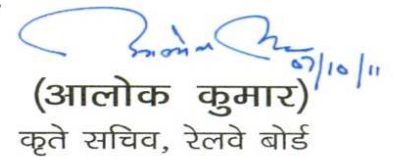 07/10/11
(आलोक कुमार)
कृते सचिव, रेलवे बोर्ड